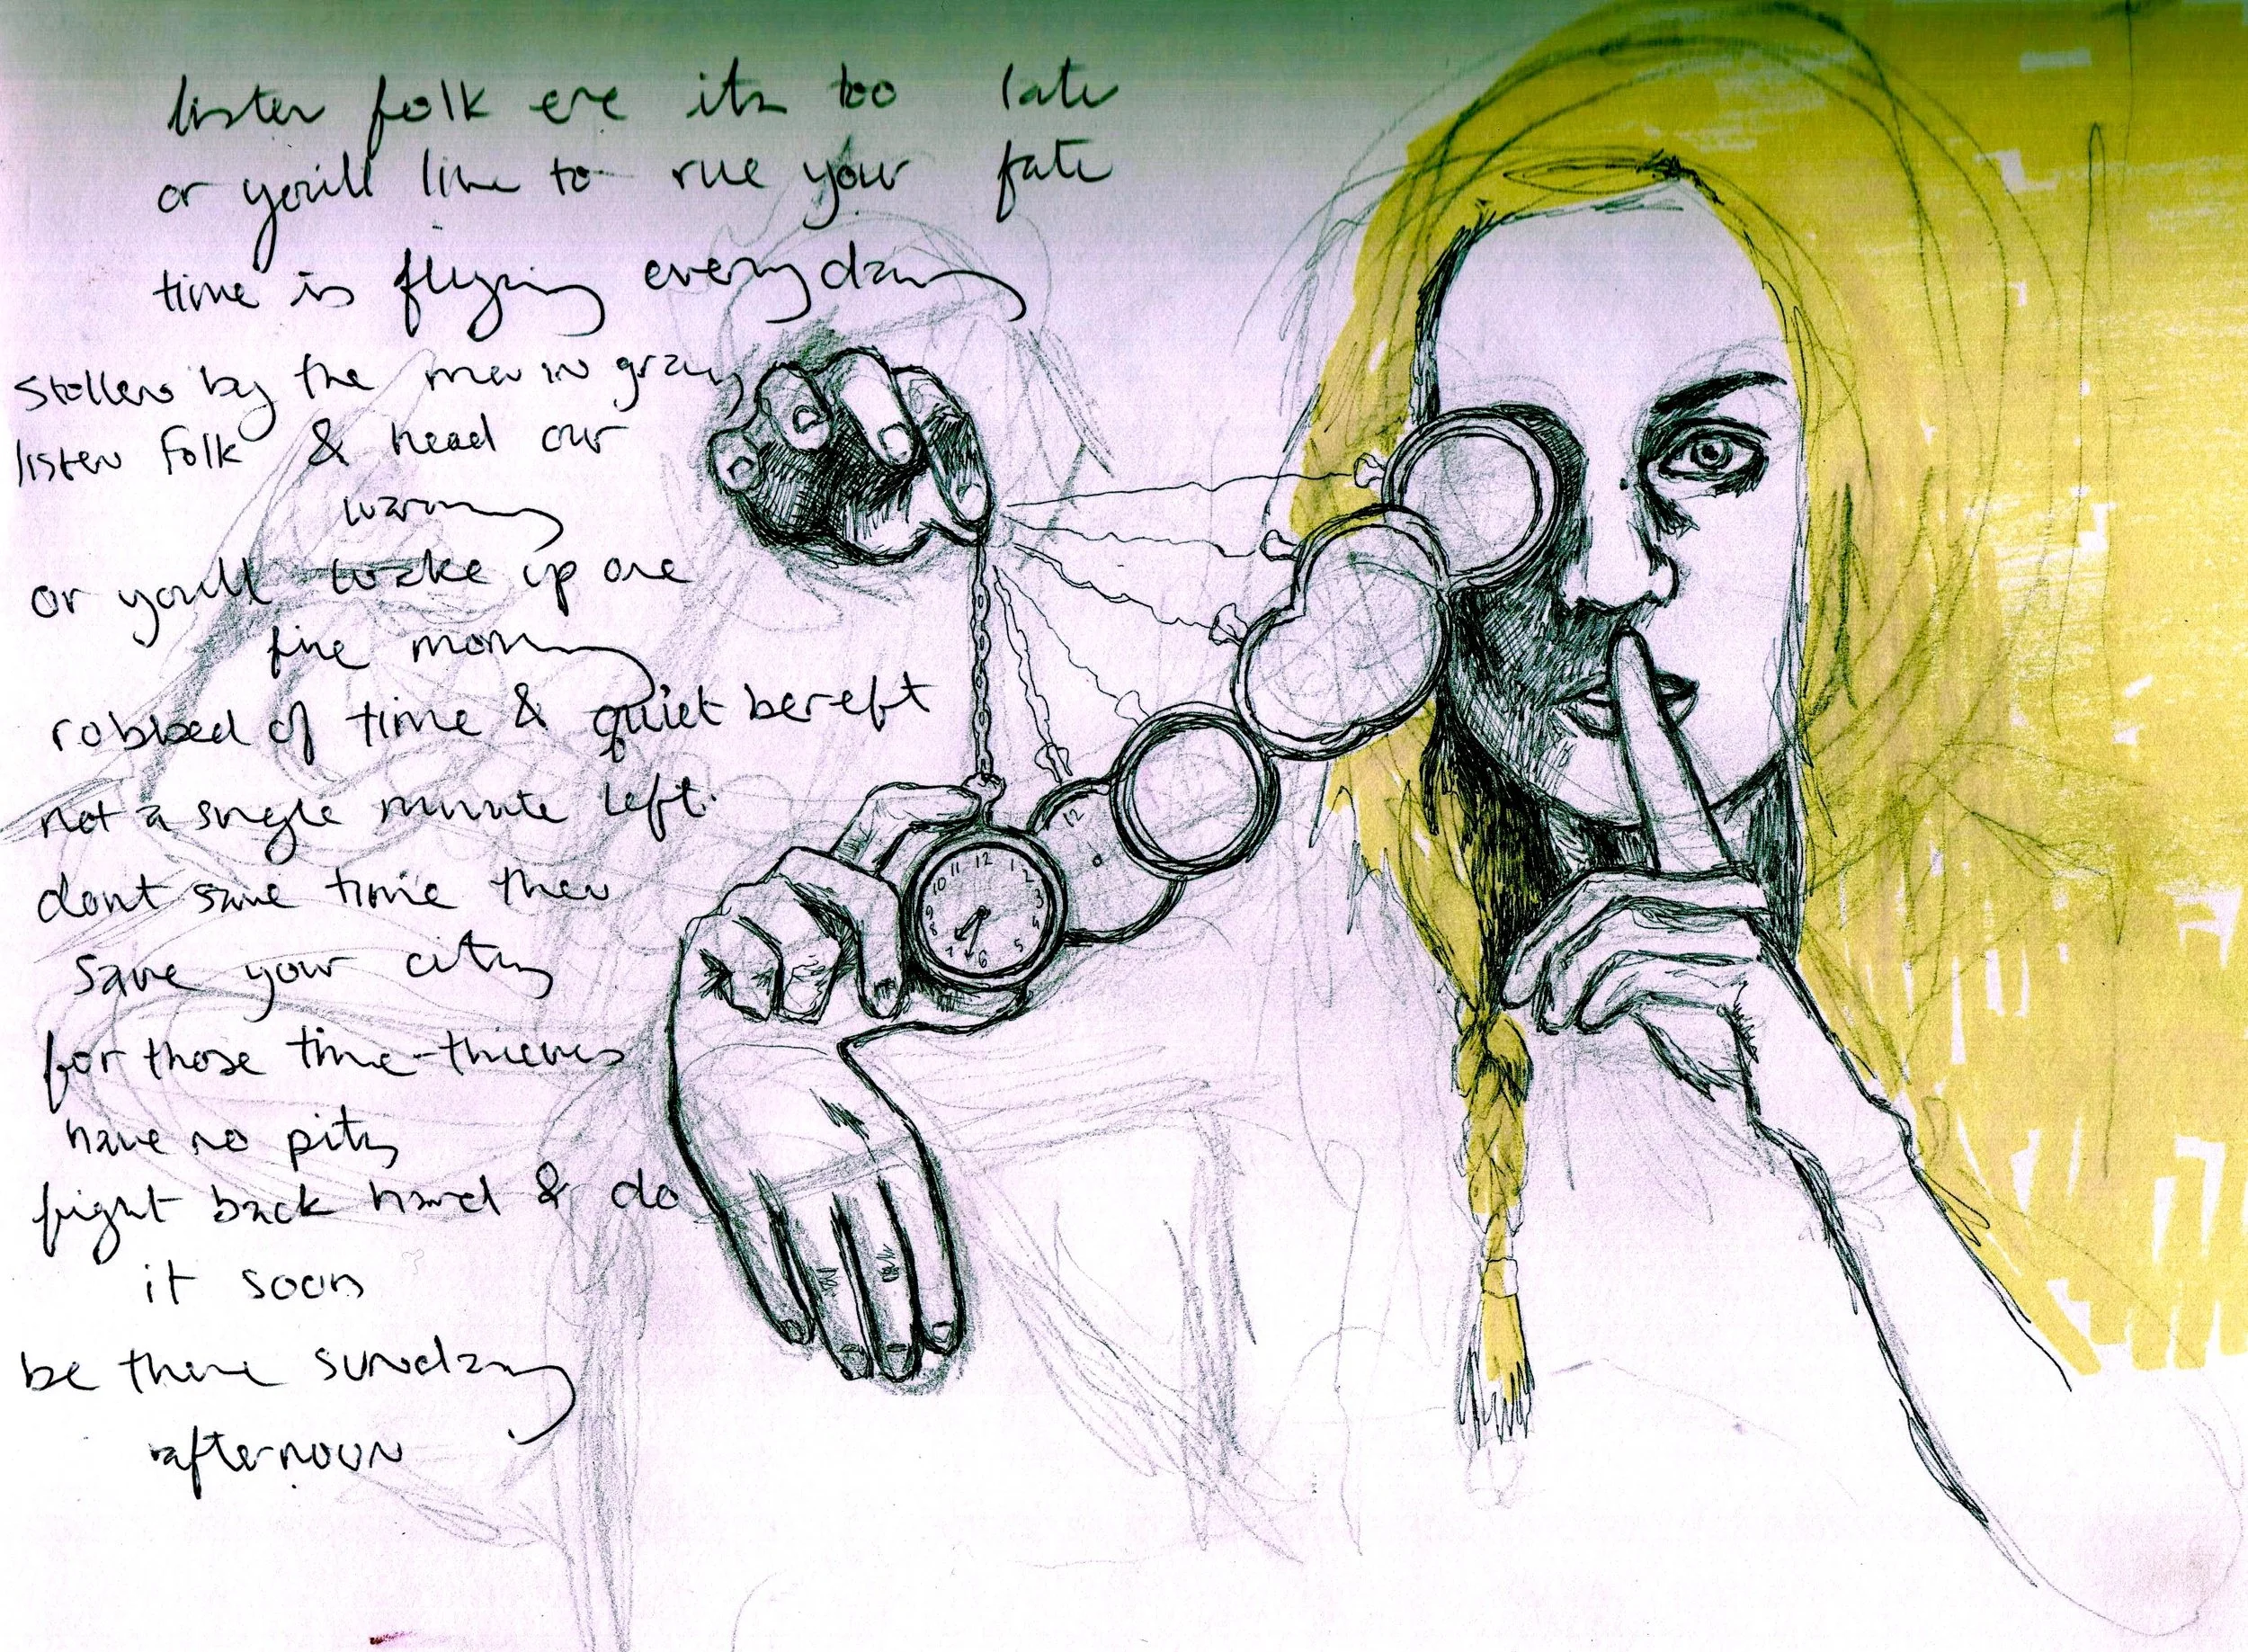 listen folk ere its too late
or you'll live to rue your fate
time is flying every day
stollen by the men in gray
listen folk & head our
warning
or you'll wake up one
fine morning
robbed of time & quiet bereft
not a single minute left.
dont save time then
save your city
for those time-thieves
have no pity
fight back hard & do
it soon
be there sunday
afternoon
12 1 2 3 4 5 6 7 8 9 10 11
12